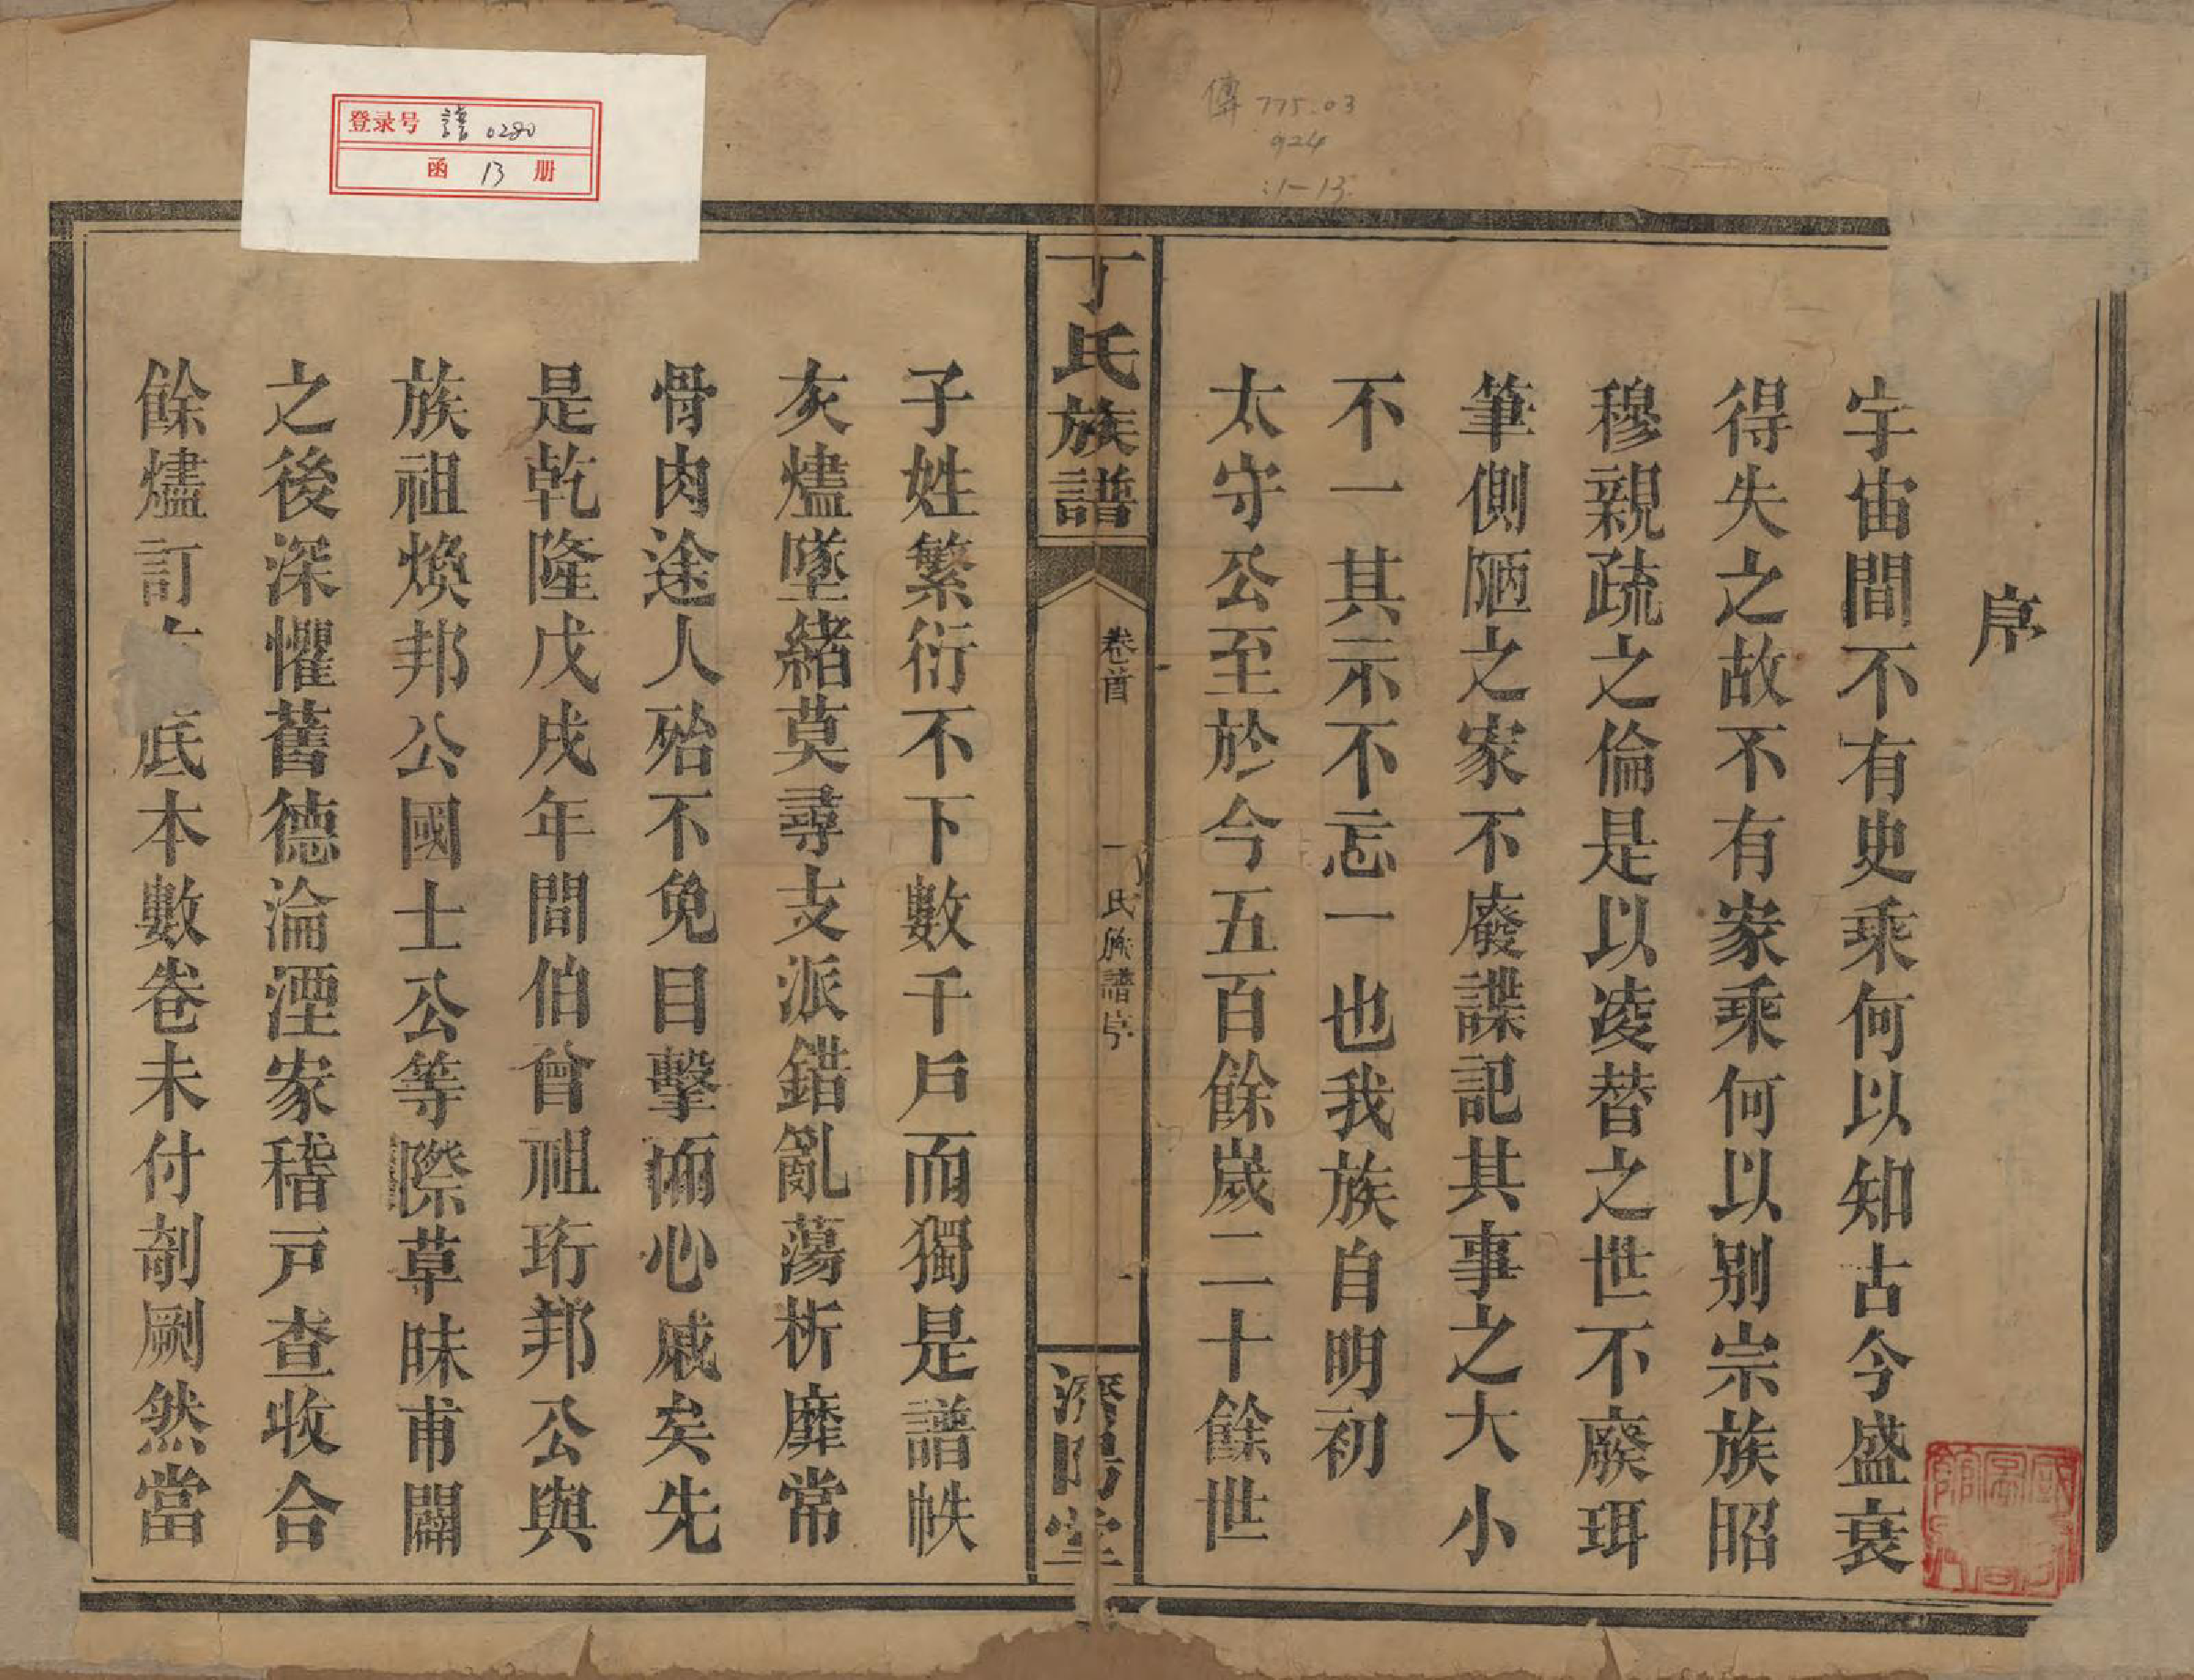 登录号 譜 0280
函 13 册
傳 775.03
924
:1-13
序
宇宙間不有史乘何以知古今盛衰
得失之故不有家乘何以别宗族昭
穆親疏之倫是以凌替之世不廢珥
筆側陋之家不廢諜記其事之大小
不一其示不忘一也我族自明初
太守公至於今五百餘歲二十餘世
丁氏族譜
卷首
丁氏族譜序
一
濟陽堂
子姓繁衍不下數千戶而獨是譜帙
灰燼墜緒莫尋支派錯亂蕩析靡常
骨肉途人殆不免目擊而心戚矣先
是乾隆戊戌年間伯曾祖珩邦公與
族祖煥邦公國士公等際草昧甫闢
之後深懼舊德淪湮家稽戸查收合
餘燼訂 底本數卷未付剞劂然當